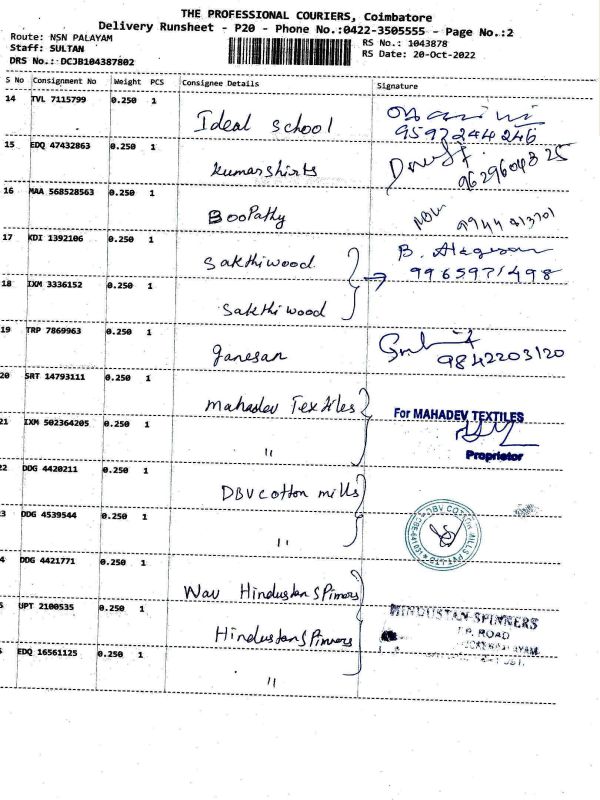 THE PROFESSIONAL COURIERS, Coimbatore
Delivery Runsheet - P20 - Phone No.:0422-3505555 - Page No.:2
Route: NSN PALAYAM
RS No.: 1043878
Staff: SULTAN
RS Date: 20-Oct-2022
DRS No.: DCJB104387802
S No Consignment No Weight PCS Consignee Details Signature
14 TVL 7115799 0.250 1 Ideal School
9597244246
15 EDQ 47432863 0.250 1 Kumar Shirts
9629604825
16 MAA 568528563 0.250 1 Boopathy
17 KDI 1392106 0.250 1 Sakthiwood B. Alagesan
9965971498
18 IXM 3336152 0.250 1 Sakthiwood
19 TRP 7869963 0.250 1 Ganesan 9842203120
20 SRT 14793111 0.250 1 Mahadev Textiles For MAHADEV TEXTILES
21 IXM 502364205 0.250 1 "
Proprietor
22 DDG 4420211 0.250 1 DBV Cotton mills
3 DDG 4539544 0.250 1 "
4 DDG 4421771 0.250 1 Hindustan Spinners
HINDUSTAN SPINNERS
UPT 2100535 0.250 1 Hindustan Spinners
ROAD
EDQ 16561125 0.250 1 "